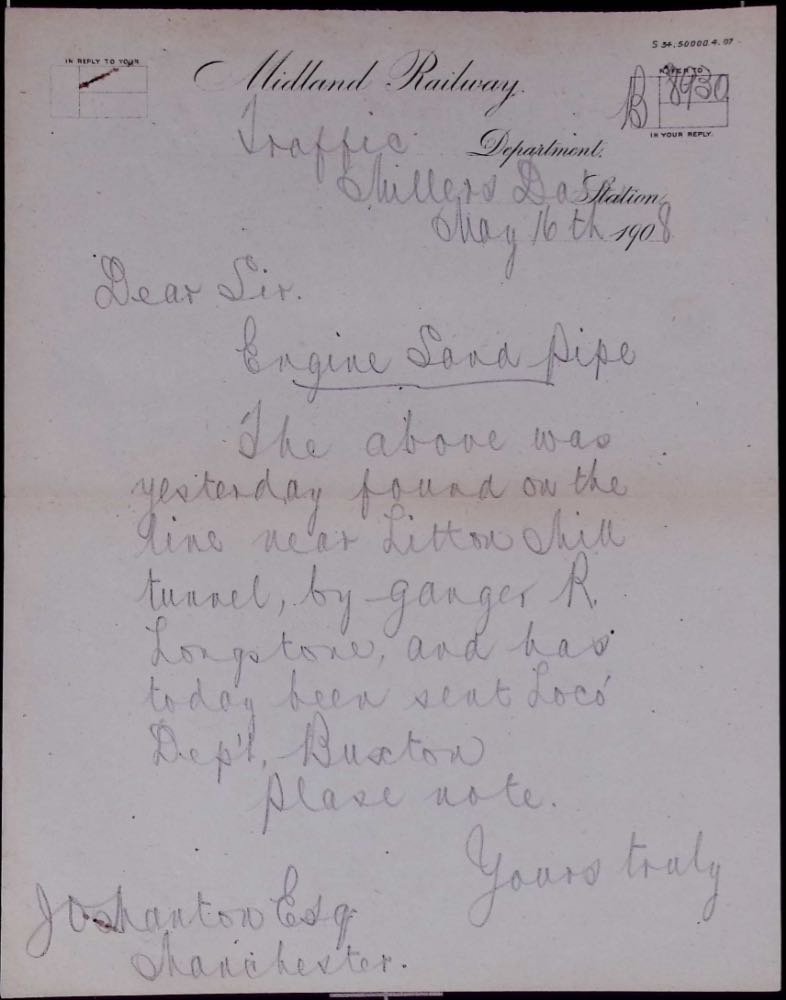 S 34. 50000. 4. 07
IN REPLY TO YOUR
REFER TO
B 8930
IN YOUR REPLY.
Midland Railway.
Traffic Department.
Millers Dale Station,
May 16th 1908
Dear Sir.
Engine Sand Pipe
The above was
yesterday found on the
line near Litton Mill
tunnel, by ganger R.
Longstone, and has
today been sent Loco
Dep't, Buxton
Please note.
Yours truly
Esq
Manchester.